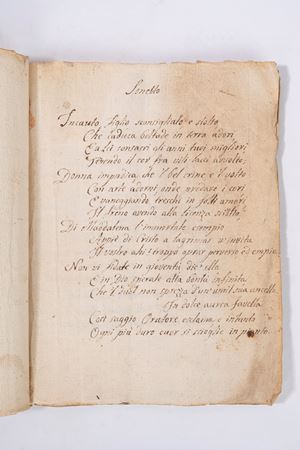 Sonetto
Incauto figlio sconsigliato e stolto
Che caduca beltade in terra adori
E a Lei consacri gli anni tuoi migliori
Tenendo il cor fra vili lacci avvolto.
Donna impudica, che 'l bel crine e 'l volto
Con arte adorni, onde predare i cori
E vaneggiando treschi in folli amori
Il freno avendo alla licenza sciolto.
Di Maddalena l'immortale esempio
A piè di Cristo a lagrimar v'invita
Il vostro ahi troppo oprar perverso ed empio.
Non vi fidate in gioventù dic' ella
E in Dio sperate alta bontà infinita
Che l' duol non sprezza d'un' umil sua ancella.
In dolce aurea favella
Così saggio Oratore esclama e intanto
Ogni più duro cuor si scioglie in pianto.